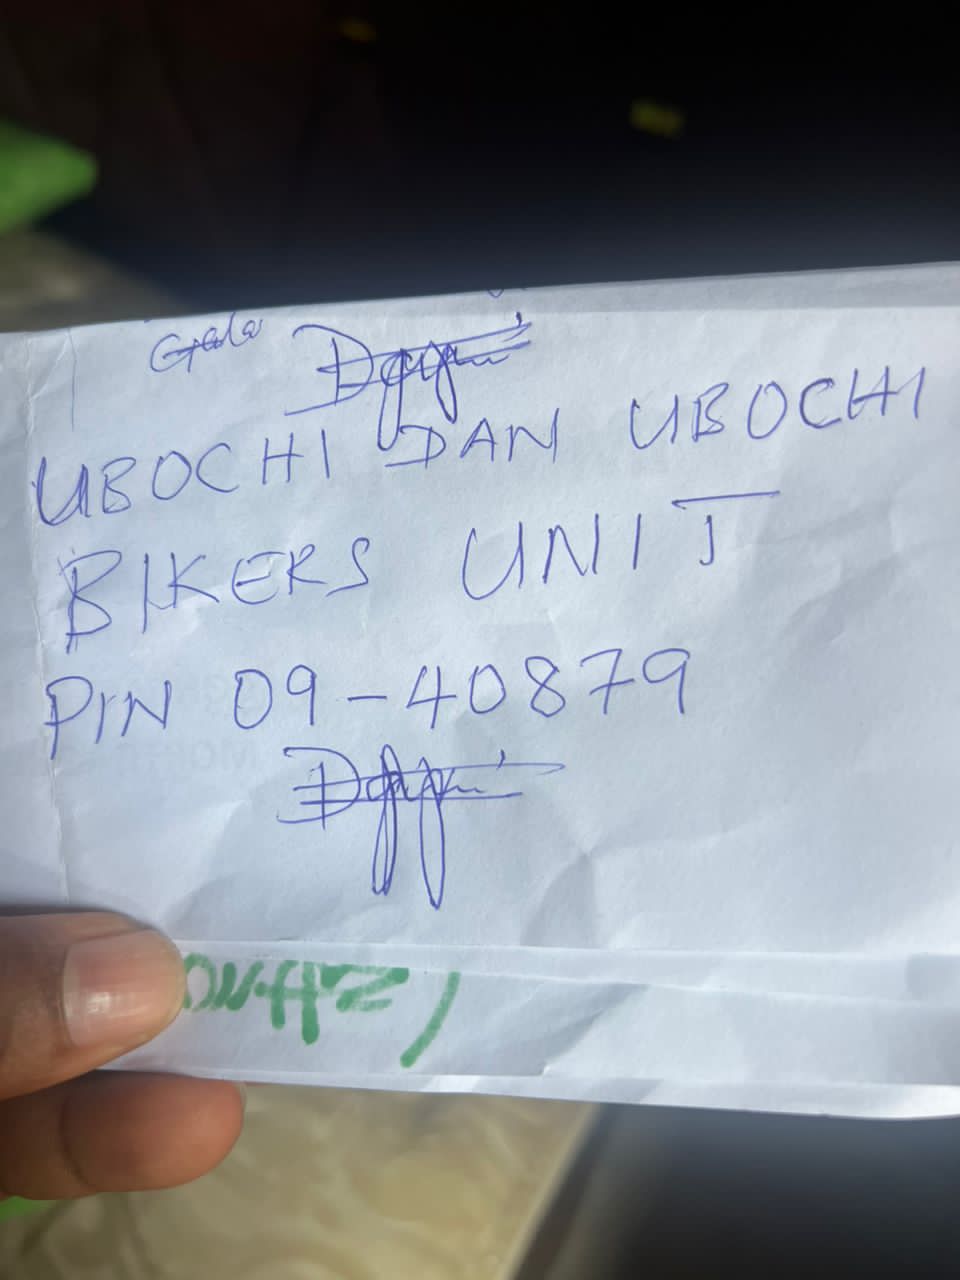 UBOCHI DAN UBOCHI
BIKERS UNIT
PIN 09-40879